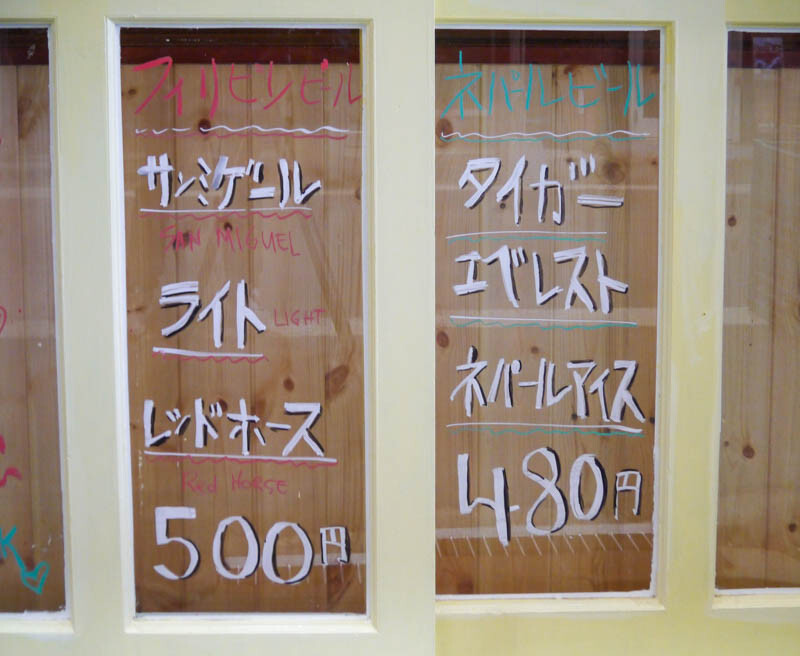 フィリピンビール
サンミゲール
SAN MIGUEL
ライト LIGHT
レッドホース
Red HORSE
500円
ネパールビール
タイガー
エベレスト
ネパールアイス
480円